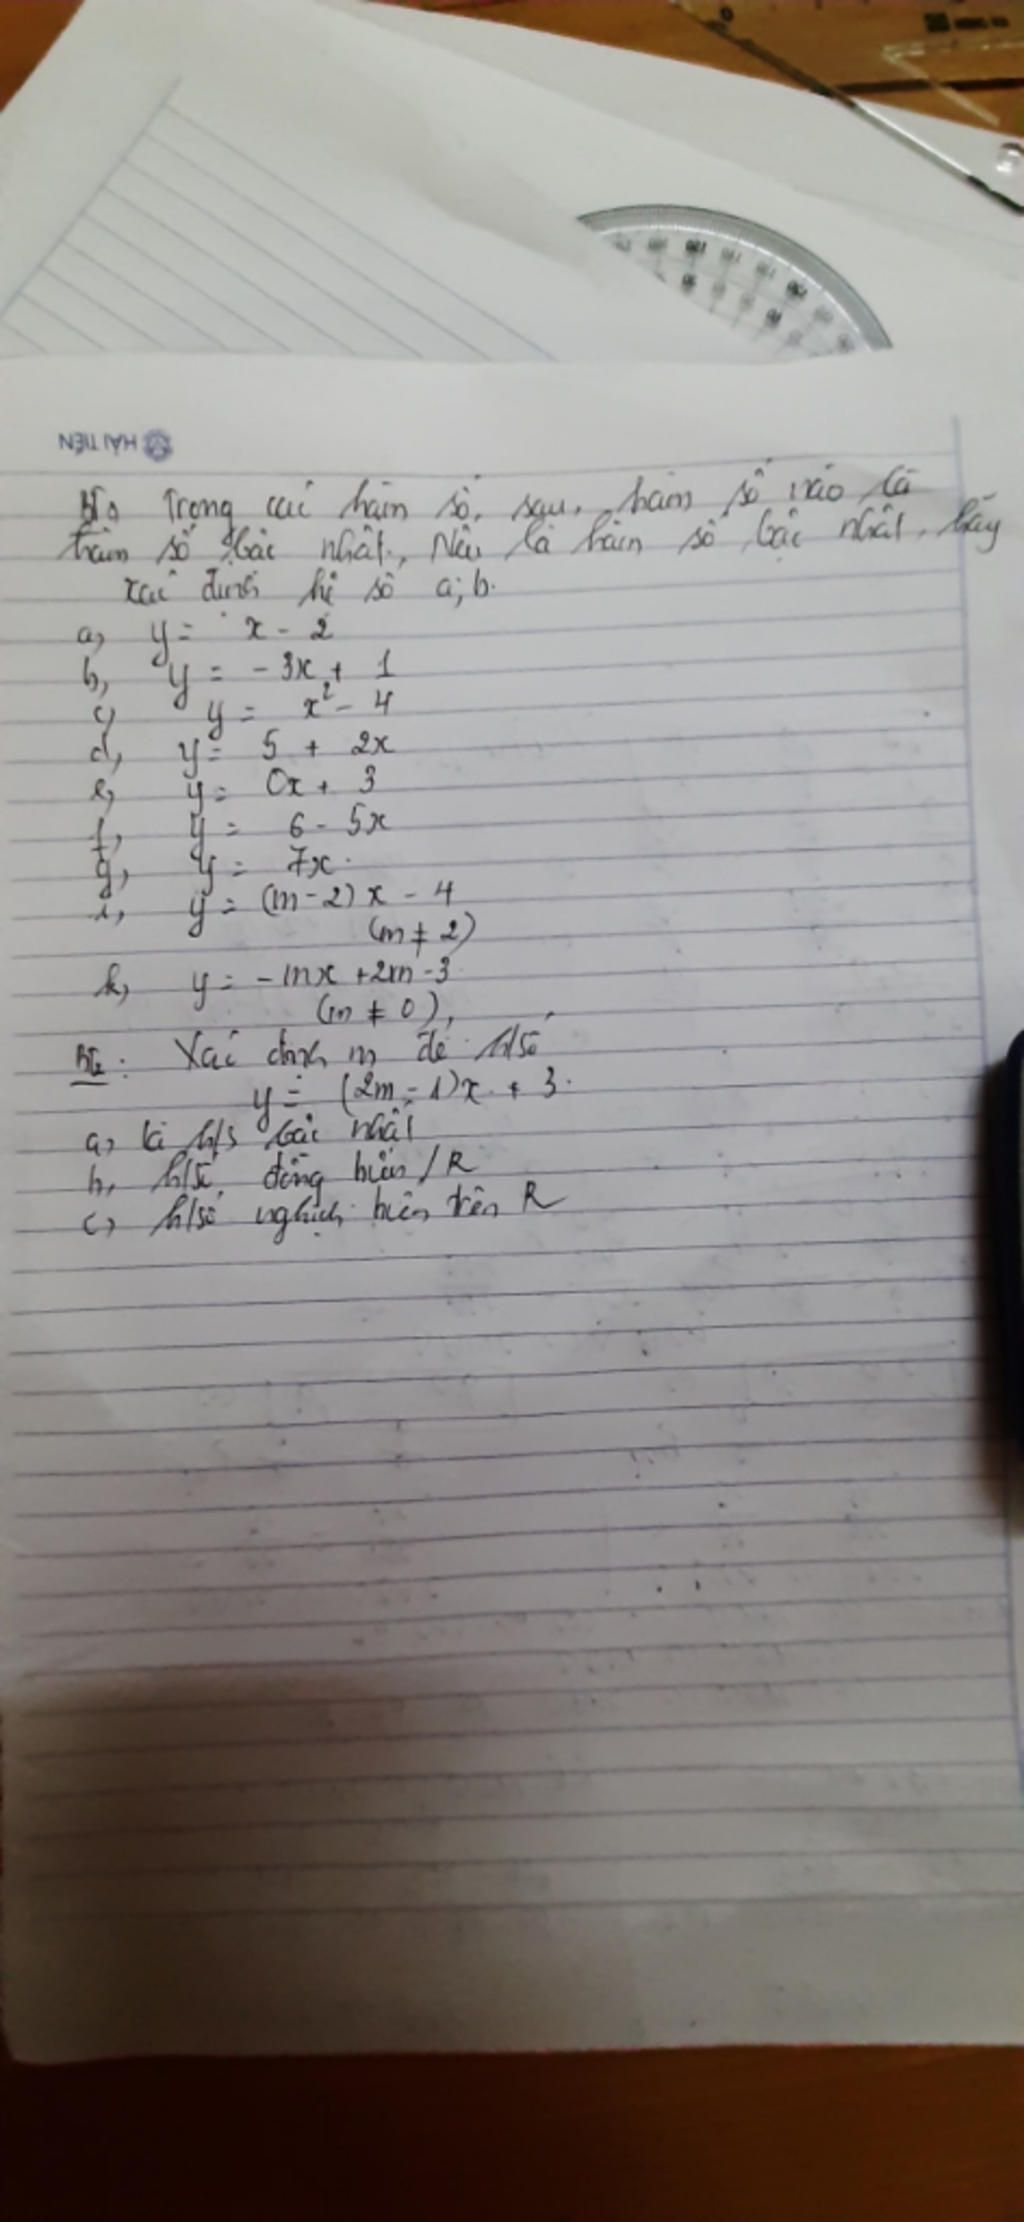 HẢI TIẾN
BT1 Trong các hàm số sau, hàm số nào là
hàm số bậc nhất. Nếu là hàm số bậc nhất, hãy
xác định hệ số a; b.
a, y = x - 2
b, y = -3x + 1
c, y = x² - 4
d, y = 5 + 2x
e, y = 0x + 3
f, y = 6 - 5x
g, y = 7x.
i, y = (m-2)x - 4
(m ≠ 2)
k, y = -mx + 2m - 3
(m ≠ 0),
BT2: Xác định m để h/số
y = (2m - 1)x + 3.
a, là h/s bậc nhất
b, h/số đồng biến / R
c, h/số nghịch biến trên R